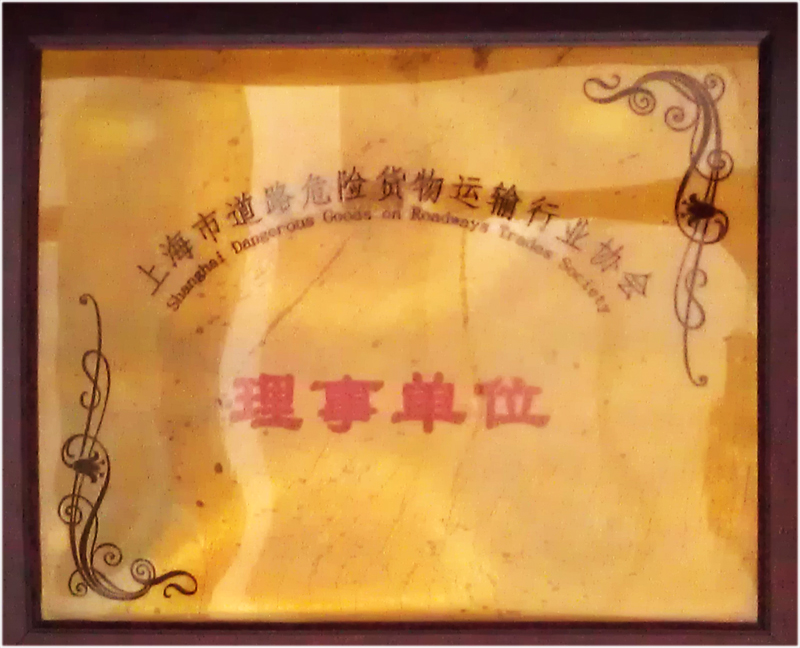 上海市道路危险货物运输行业协会
Shanghai Dangerous Goods on Roadways Trades Society
理事单位